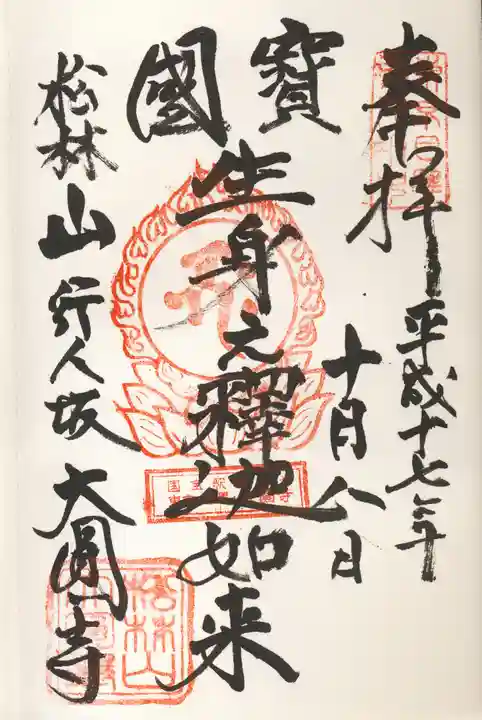 奉拝
平成十七年
十月八日
國寳
生身之釋迦如来
松林山行人坂大圓寺
松林山